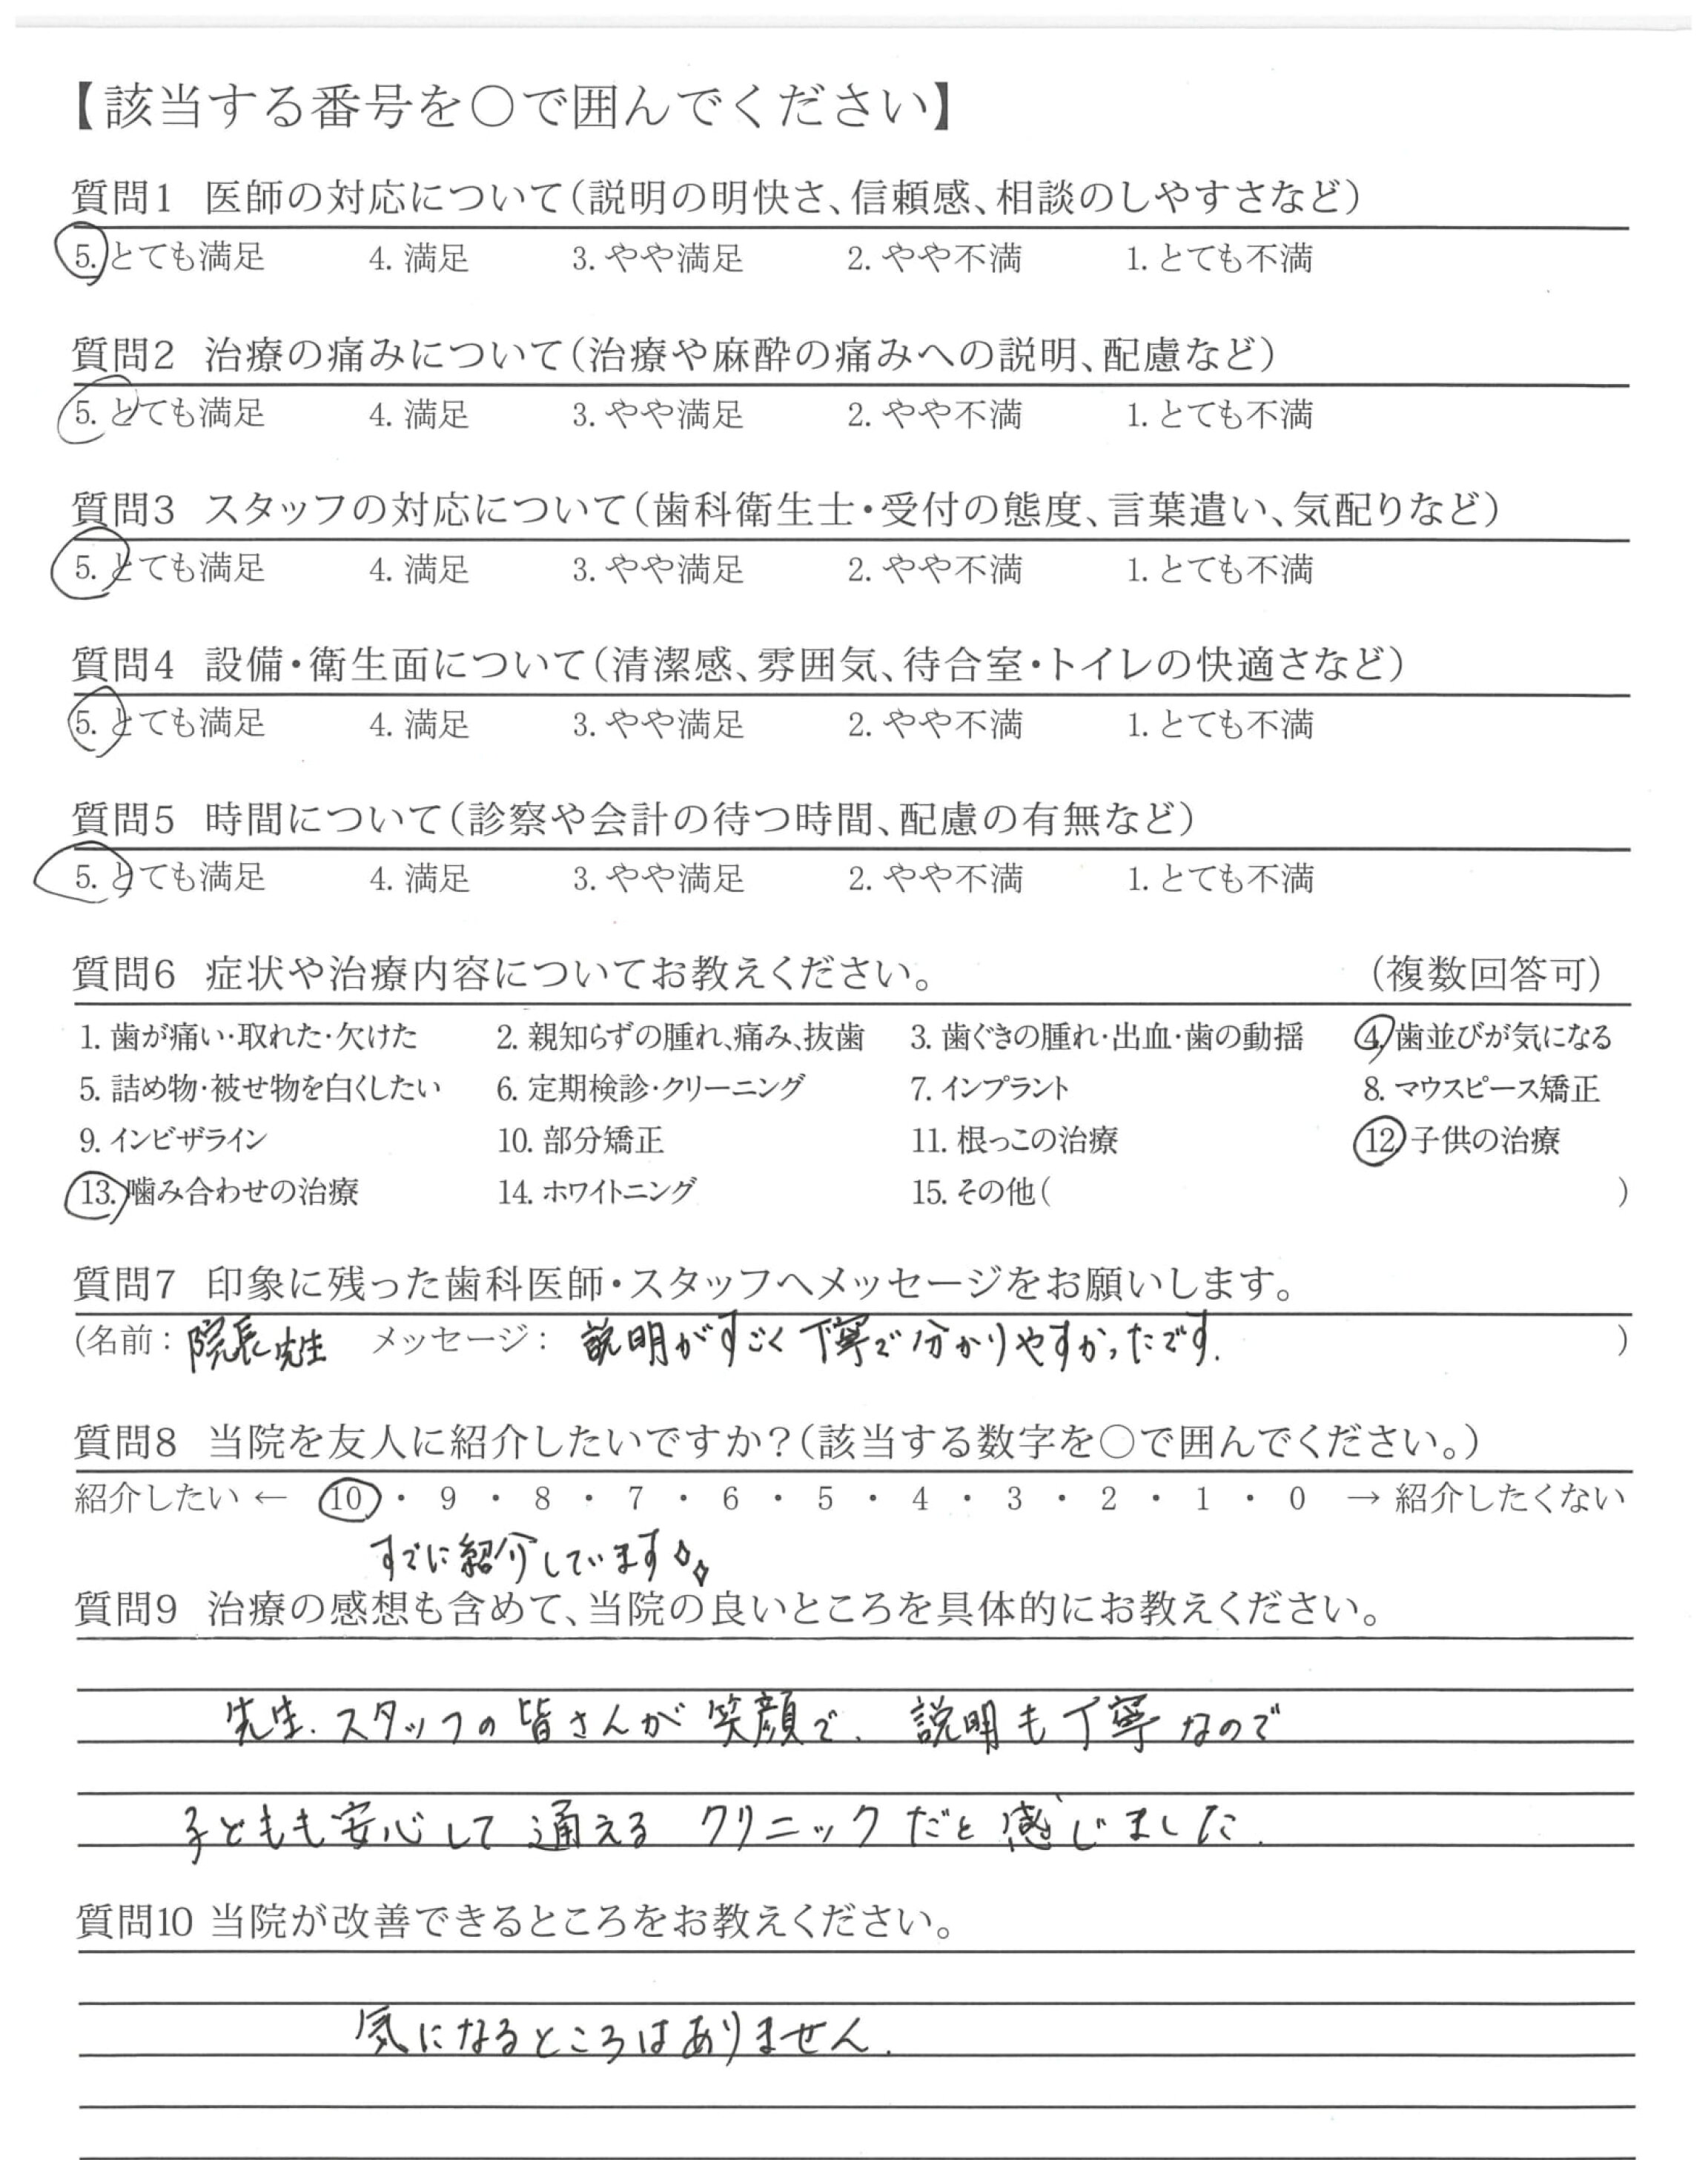 【該当する番号を〇で囲んでください】
質問1 医師の対応について(説明の明快さ、信頼感、相談のしやすさなど)
5. とても満足 4. 満足 3. やや満足 2. やや不満 1. とても不満
質問2 治療の痛みについて(治療や麻酔の痛みへの説明、配慮など)
5. とても満足 4. 満足 3. やや満足 2. やや不満 1. とても不満
質問3 スタッフの対応について(歯科衛生士・受付の態度、言葉遣い、気配りなど)
5. とても満足 4. 満足 3. やや満足 2. やや不満 1. とても不満
質問4 設備・衛生面について(清潔感、雰囲気、待合室・トイレの快適さなど)
5. とても満足 4. 満足 3. やや満足 2. やや不満 1. とても不満
質問5 時間について(診察や会計の待つ時間、配慮の有無など)
5. とても満足 4. 満足 3. やや満足 2. やや不満 1. とても不満
質問6 症状や治療内容についてお教えください。 (複数回答可)
1. 歯が痛い・取れた・欠けた 2. 親知らずの腫れ、痛み、抜歯 3. 歯ぐきの腫れ・出血・歯の動揺 4. 歯並びが気になる
5. 詰め物・被せ物を白くしたい 6. 定期検診・クリーニング 7. インプラント 8. マウスピース矯正
9. インビザライン 10. 部分矯正 11. 根っこの治療 12. 子供の治療
13. 噛み合わせの治療 14. ホワイトニング 15. その他( )
質問7 印象に残った歯科医師・スタッフへメッセージをお願いします。
(名前: 院長先生 メッセージ: 説明がすごく丁寧で分かりやすかったです. )
質問8 当院を友人に紹介したいですか?(該当する数字を〇で囲んでください。)
紹介したい ← 10 ・ 9 ・ 8 ・ 7 ・ 6 ・ 5 ・ 4 ・ 3 ・ 2 ・ 1 ・ 0 → 紹介したくない
すでに紹介しています
質問9 治療の感想も含めて、当院の良いところを具体的にお教えください。
先生、スタッフの皆さんが笑顔で、説明も丁寧なので
子どもも安心して通えるクリニックだと感じました.
質問10 当院が改善できるところをお教えください。
気になるところはありません.